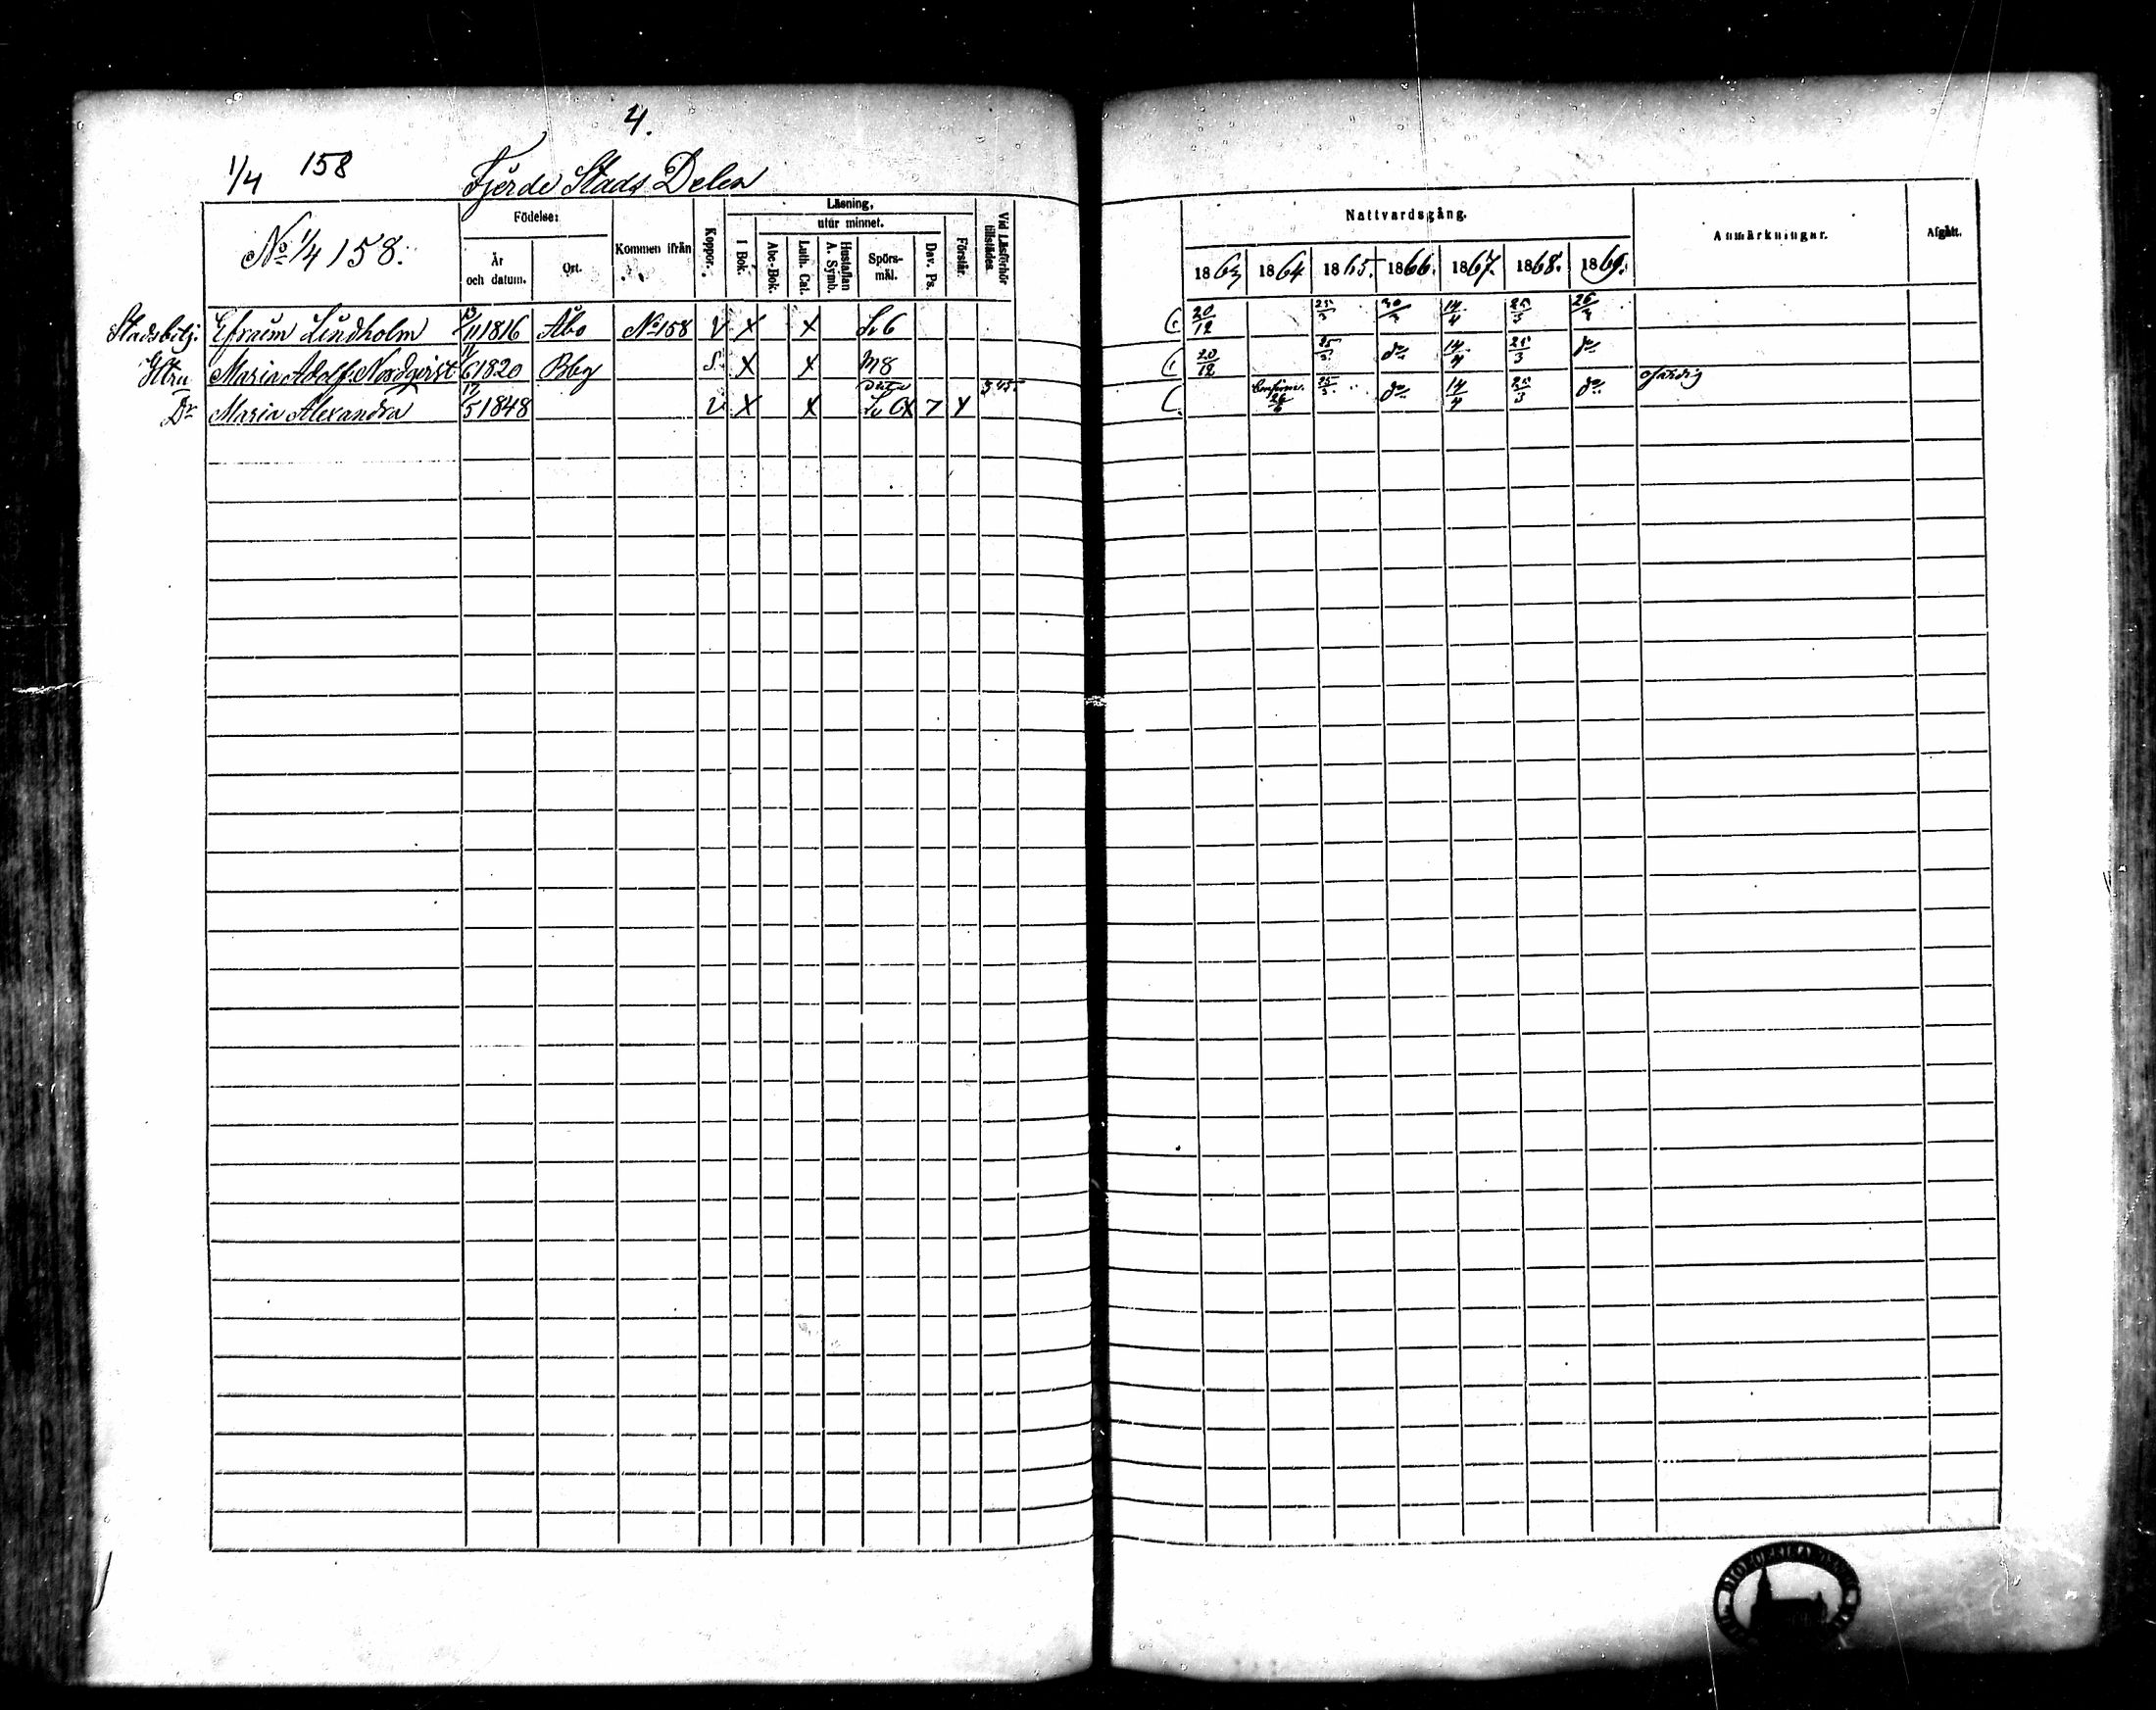 4.
1/4 158 Fjerde Stads Delen
No 1/4 158.
Födelse:
År och datum.
Ort.
Kommen ifrån
Koppor.
Läsning,
I Bok.
utur minnet.
Abc-Bok.
Luth. Cat.
Hustaflan A. Symb.
Spörs-mål.
Dav. Ps.
Förstår.
Vid Läsförhör tillstädes
Nattvardsgång.
1863 1864 1865. 1866. 1867. 1868. 1869.
Anmärkningar.
Afgått.
Stadsbetj. Efraim Lindholm 13/11 1816 Åbo No 158 V X X Sv 6 C 20/12 25/3 14/4 25/3
Hstru Maria Adolf. Nordqvist 6 1820 Bbg S. X X m 8 C 20/12 25/3 do 14/4 25/3 do
Dr Maria Alexandra 17/5 1848 V X X Sv 7 C 25/3 do 14/4 25/3 do